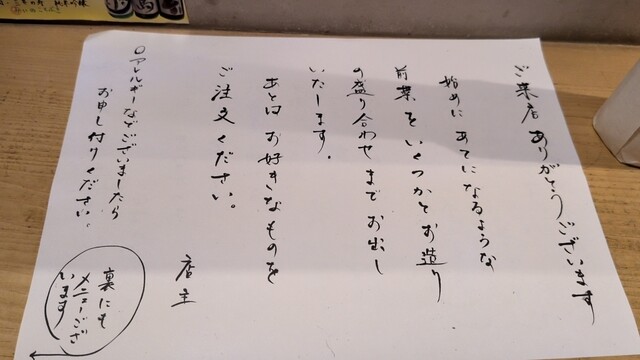 ご来店ありがとうございます
始めにあてになるような
前菜をいくつかとお造り
の盛り合わせまでお出し
いたします。
あとはお好きなものを
ご注文ください。
店主
ロアレルギーなどございましたら
お申し付けください。
裏にも
メニューござ
います